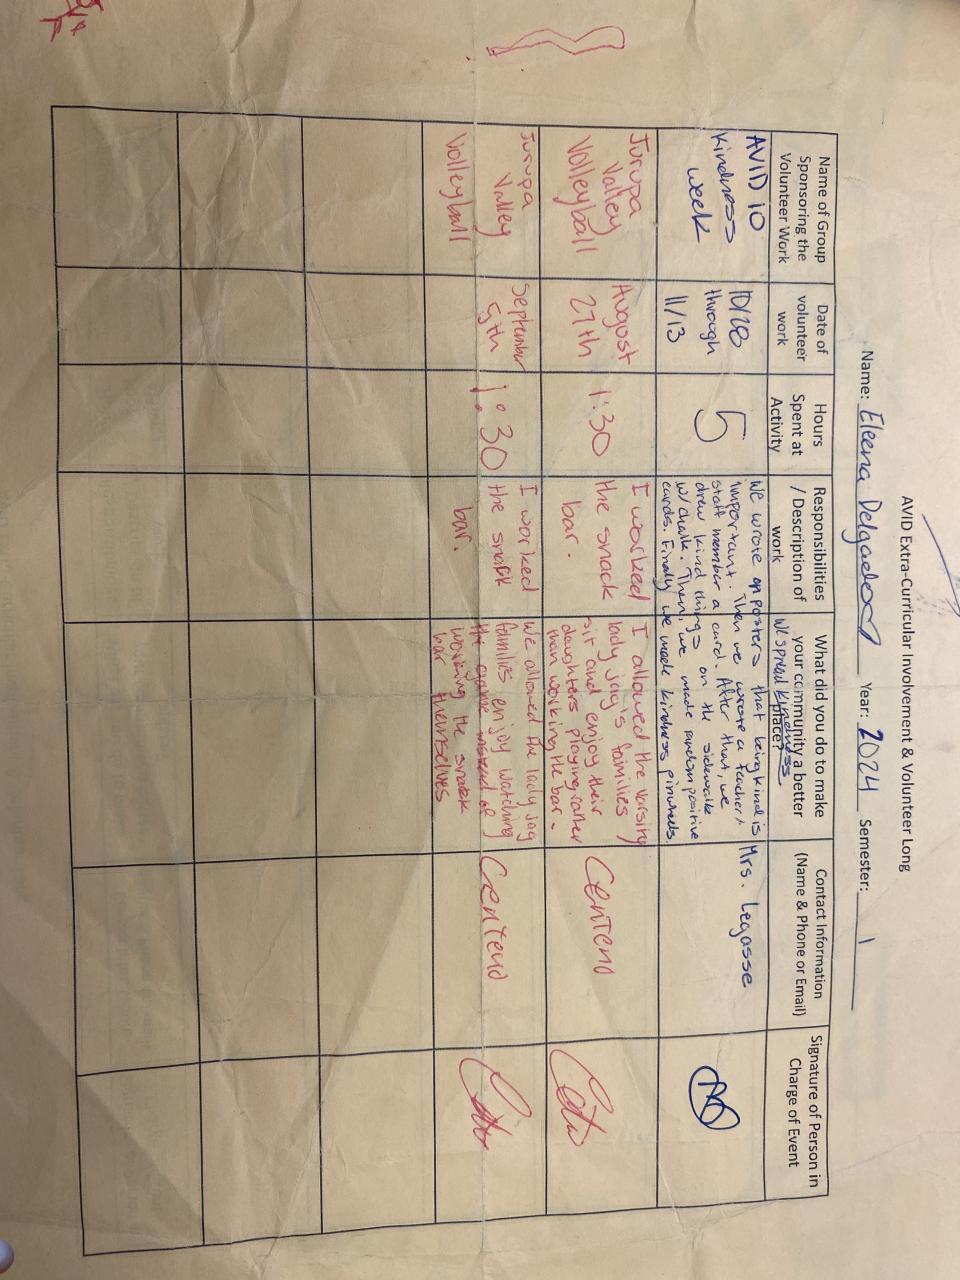 AVID Extra-Curricular Involvement & Volunteer Long
Name: Eleena Delgado Year: 2024 Semester: 1
Name of Group
Sponsoring the
Volunteer Work
Date of
volunteer
work
Hours
Spent at
Activity
Responsibilities
/ Description of
work
What did you do to make
your community a better
place?
Contact Information
(Name & Phone or Email)
Signature of Person in
Charge of Event
AVID 10
Kindness
week
10/28
through
11/13
5
We wrote on posters that being kind is
important. Then we wrote a teacher +
staff member a card. After that, we
drew kind things on the sidewalk
w/ chalk. Then, we made random positive
cards. Finally we made kindness pinwheels.
We spread kindness.
Mrs. Legasse
Jurupa
Valley
Volleyball
August
27th
1:30
I worked
the snack
bar.
I allowed the varsity
lady jag's families
sit and enjoy their
daughters playing rather
than working the bar.
Centeno
Jurupa
Valley
Volleyball
September
5th
1:30
I worked
the snack
bar.
We allowed the lady jag
families enjoy watching
the game instead of
working the snack
bar themselves
Centeno